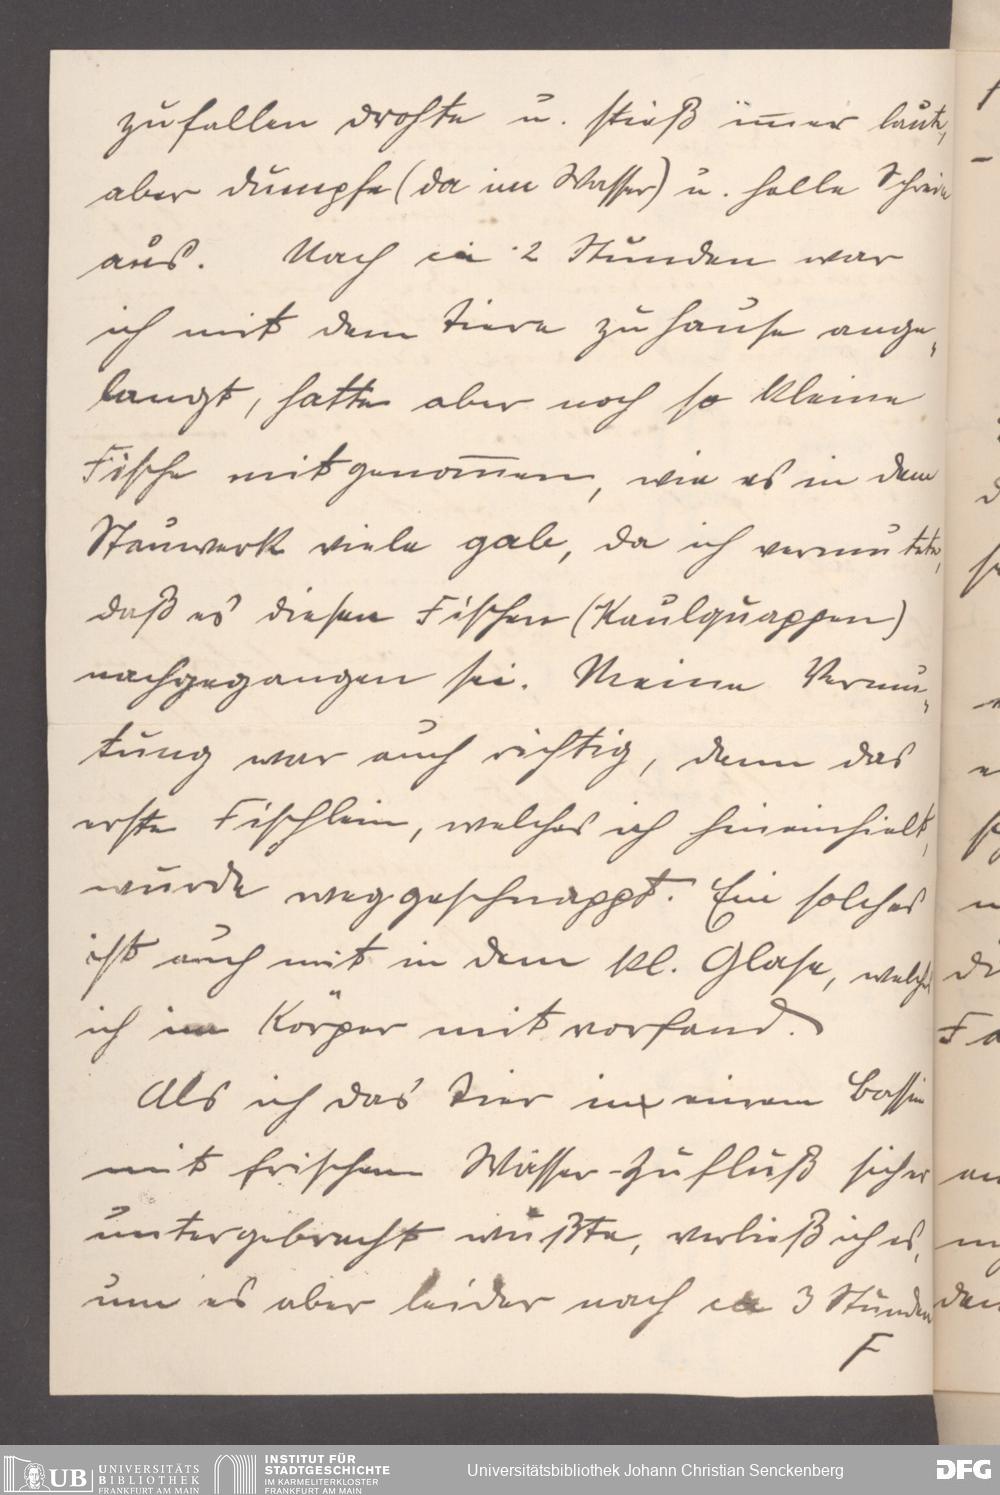 zu fallen drohte u. stieß im̅er laute,
aber dumpfe (da im Wasser) u. helle Schreie
aus. Nach ca 2 Stunden war
ich mit dem Tiere zu hause ange„
langt, hatte aber noch so kleine
Fische mitgenom̅en, wie es in dem
Stauwerk viele gab, da ich vermutete,
daß es diesen Fischen (Kaulquappen)
nachgegangen sei. Meine Vermu„
tung war auch richtig, denn das
erste Fischlein, welches ich hineinhielt,
wurde weggeschnappt. Ein solches
ist auch mit in dem kl. Glase, welches
ich im Körper mit vorfand.
Als ich das Tier in einem Bassin
mit frischem Wasser-Zufluß sicher
untergebracht wußte, verließ ich es,
um es aber leider nach ca 3 Stunden
F
UB UNIVERSITÄTS BIBLIOTHEK FRANKFURT AM MAIN
INSTITUT FÜR STADTGESCHICHTE IM KARMELITERKLOSTER FRANKFURT AM MAIN
Universitätsbibliothek Johann Christian Senckenberg
DFG